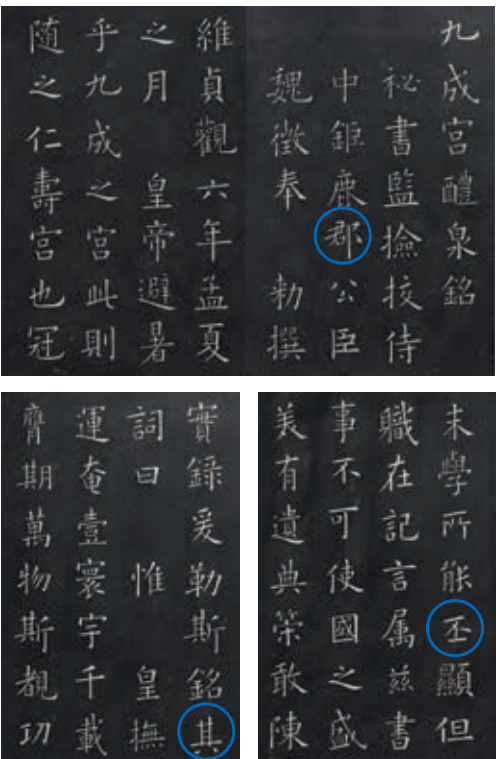 九成宮醴泉銘
祕書監撿挍侍
中鉅鹿郡公臣
魏徵奉 勑撰
維貞觀六年孟夏
之月 皇帝避暑
乎九成之宮此則
随之仁壽宮也冠
末學所能丕顯但
職在記言属兹書
事不可使國之盛
美有遺典策敢陳
實錄爰勒斯銘其
詞曰 惟 皇撫
運奄壹寰宇千載
膺期萬物斯覩功